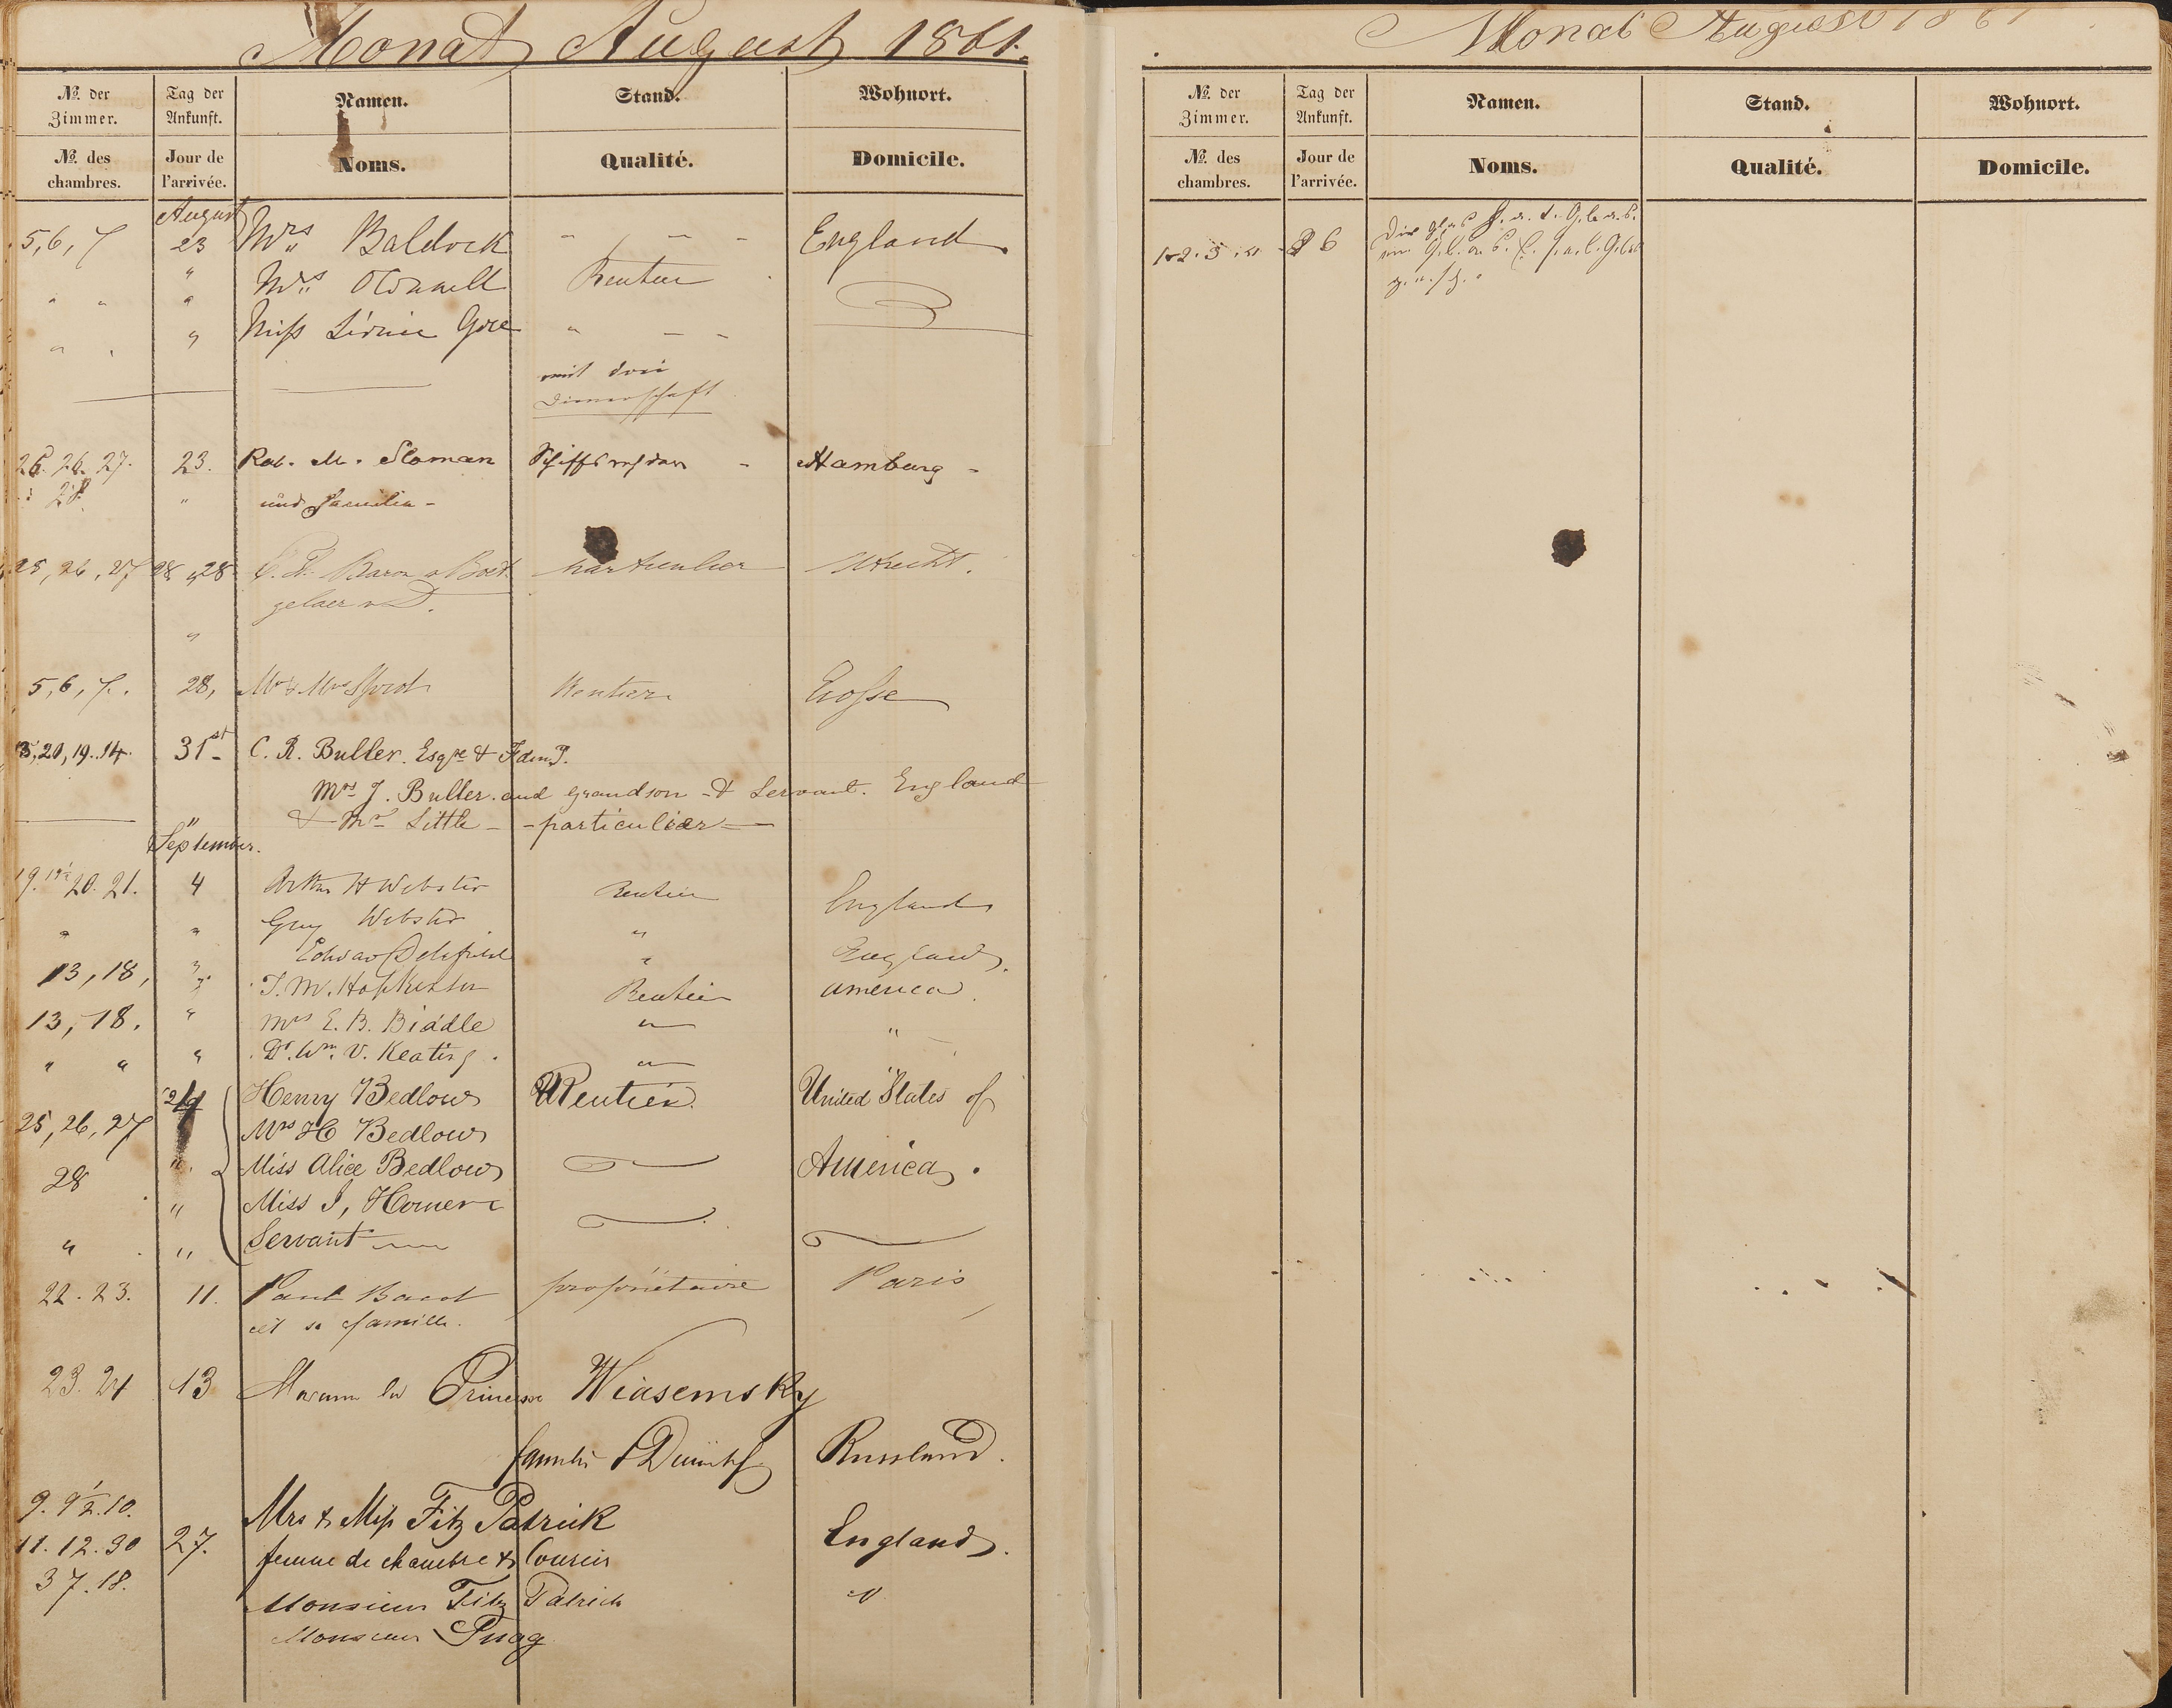 Monat August 1861.
No. der Zimmer. Tag der Ankunft. Namen. Stand. Wohnort.
No. des chambres. Jour de l'arrivée. Noms. Qualité. Domicile.
August
5, 6, 7 23 Mrs Baldock " - - England
" Mrs O'Connell Rentier
" " "
" " " Miss Gore " - -
mit drei
Dienerschaft
26. 27. 23. Rob. M. Sloman Schiffsrheder - Hamburg -
28. " und Familie -
25, 26, 27 28 Baron v Boet particulier Utrecht.
gelaer v D.
"
5, 6, 7. 28, Mr & Mrs Rentier Ecosse
20, 19. 14. 31st C. R. Buller. Esqre &
Mrs J. Buller. and grandson & Servant. England
" & Mr Little - - particulier -
September.
19. 20. 21. 4 Arthur H Webster Rentier England
" " Guy Webster "
Edward Delafield " England.
13, 18, " T. M. Hopkinson Rentier America
13, 18. " Mrs E. B. Biddle " "
" " " Dr. Wm. V. Keating. "
Henry Bedlow Rentier. United States of
25, 26, 27 Mrs H Bedlow
28 " Miss Alice Bedlow America.
" Miss J, Homer
" " Servant
22. 23. 11. Paul Bacot propriétaire Paris
et sa famille.
23. 24 13 Madame la Princesse Wiasemsky
Russland.
9. 9½. 10. Mrs & Miss Fitz Patrick
11. 12. 30 27. femme de chambre & Courier England.
37. 18. Monsieur Fitz Patrick "
Monsieur
Monat August 1861
No. der Zimmer. Tag der Ankunft. Namen. Stand. Wohnort.
No. des chambres. Jour de l'arrivée. Noms. Qualité. Domicile.